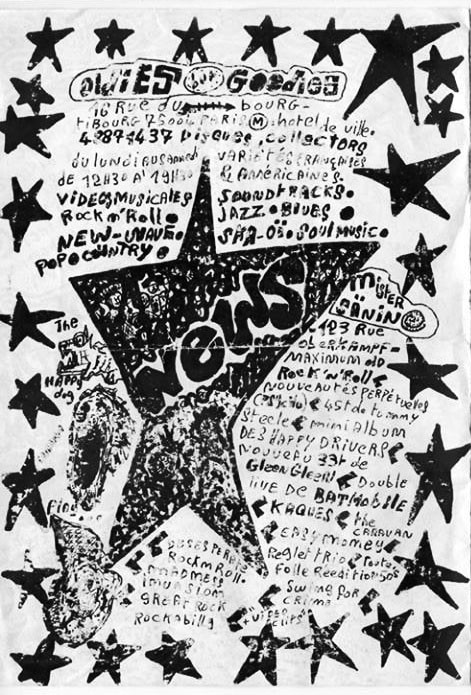 OLDIES and GOODIES
16 Rue du bourg-
tibourg 75004 PARIS M. hotel de ville.
48874437 Disques, collectors
du lundi au samedi
de 12H30 A 19H30
VIDEOS MUSICALES
Rock n' Roll.
NEW-WAVE.
POP COUNTRY.
VARIETES FRANÇAISES
& AMERICAINES.
SOUNDTRACKS.
JAZZ. BLUES.
SKA-OI. SOUL MUSIC.
NEWS
MISTER
123 Rue
oberkampf-
MAXIMUM DU
ROCK 'N' ROLL
NOUVEAUTÉS PERPÉTUELLES
45t de tommy
steele mini Album
DES HAPPY DRIVERS
NOUVEAU 33t de
Double
live DE BATMOBILE
KAQUES the
CARAVAN
EASY MONEY
Trio toute
folle Reeditions
Swing for
crime
The
HAPPY
dog
find
Rock n Roll.
MADNESS
GREAT ROCK
Rockabilly